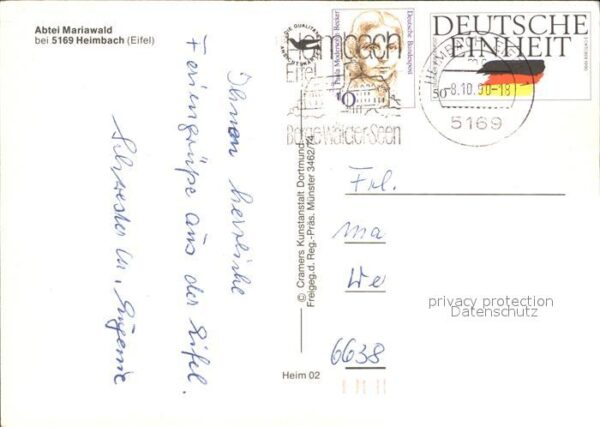 Abtei Mariawald
bei 5169 Heimbach (Eifel)
Ihnen herzliche
Feriengrüße aus der Eifel.
Schwester M. Eugenie
© Cramers Kunstanstalt Dortmund
Freigeg. d. Reg.-Präs. Münster 3462/74
Heim 02
Heimbach
Eifel
Berge Wälder Seen
Paula Modersohn-Becker
Deutsche Bundespost
10
DEUTSCHE
EINHEIT
50
-8.10.90-18
5169
Frl.
Ma
We
6638
privacy protection
Datenschutz